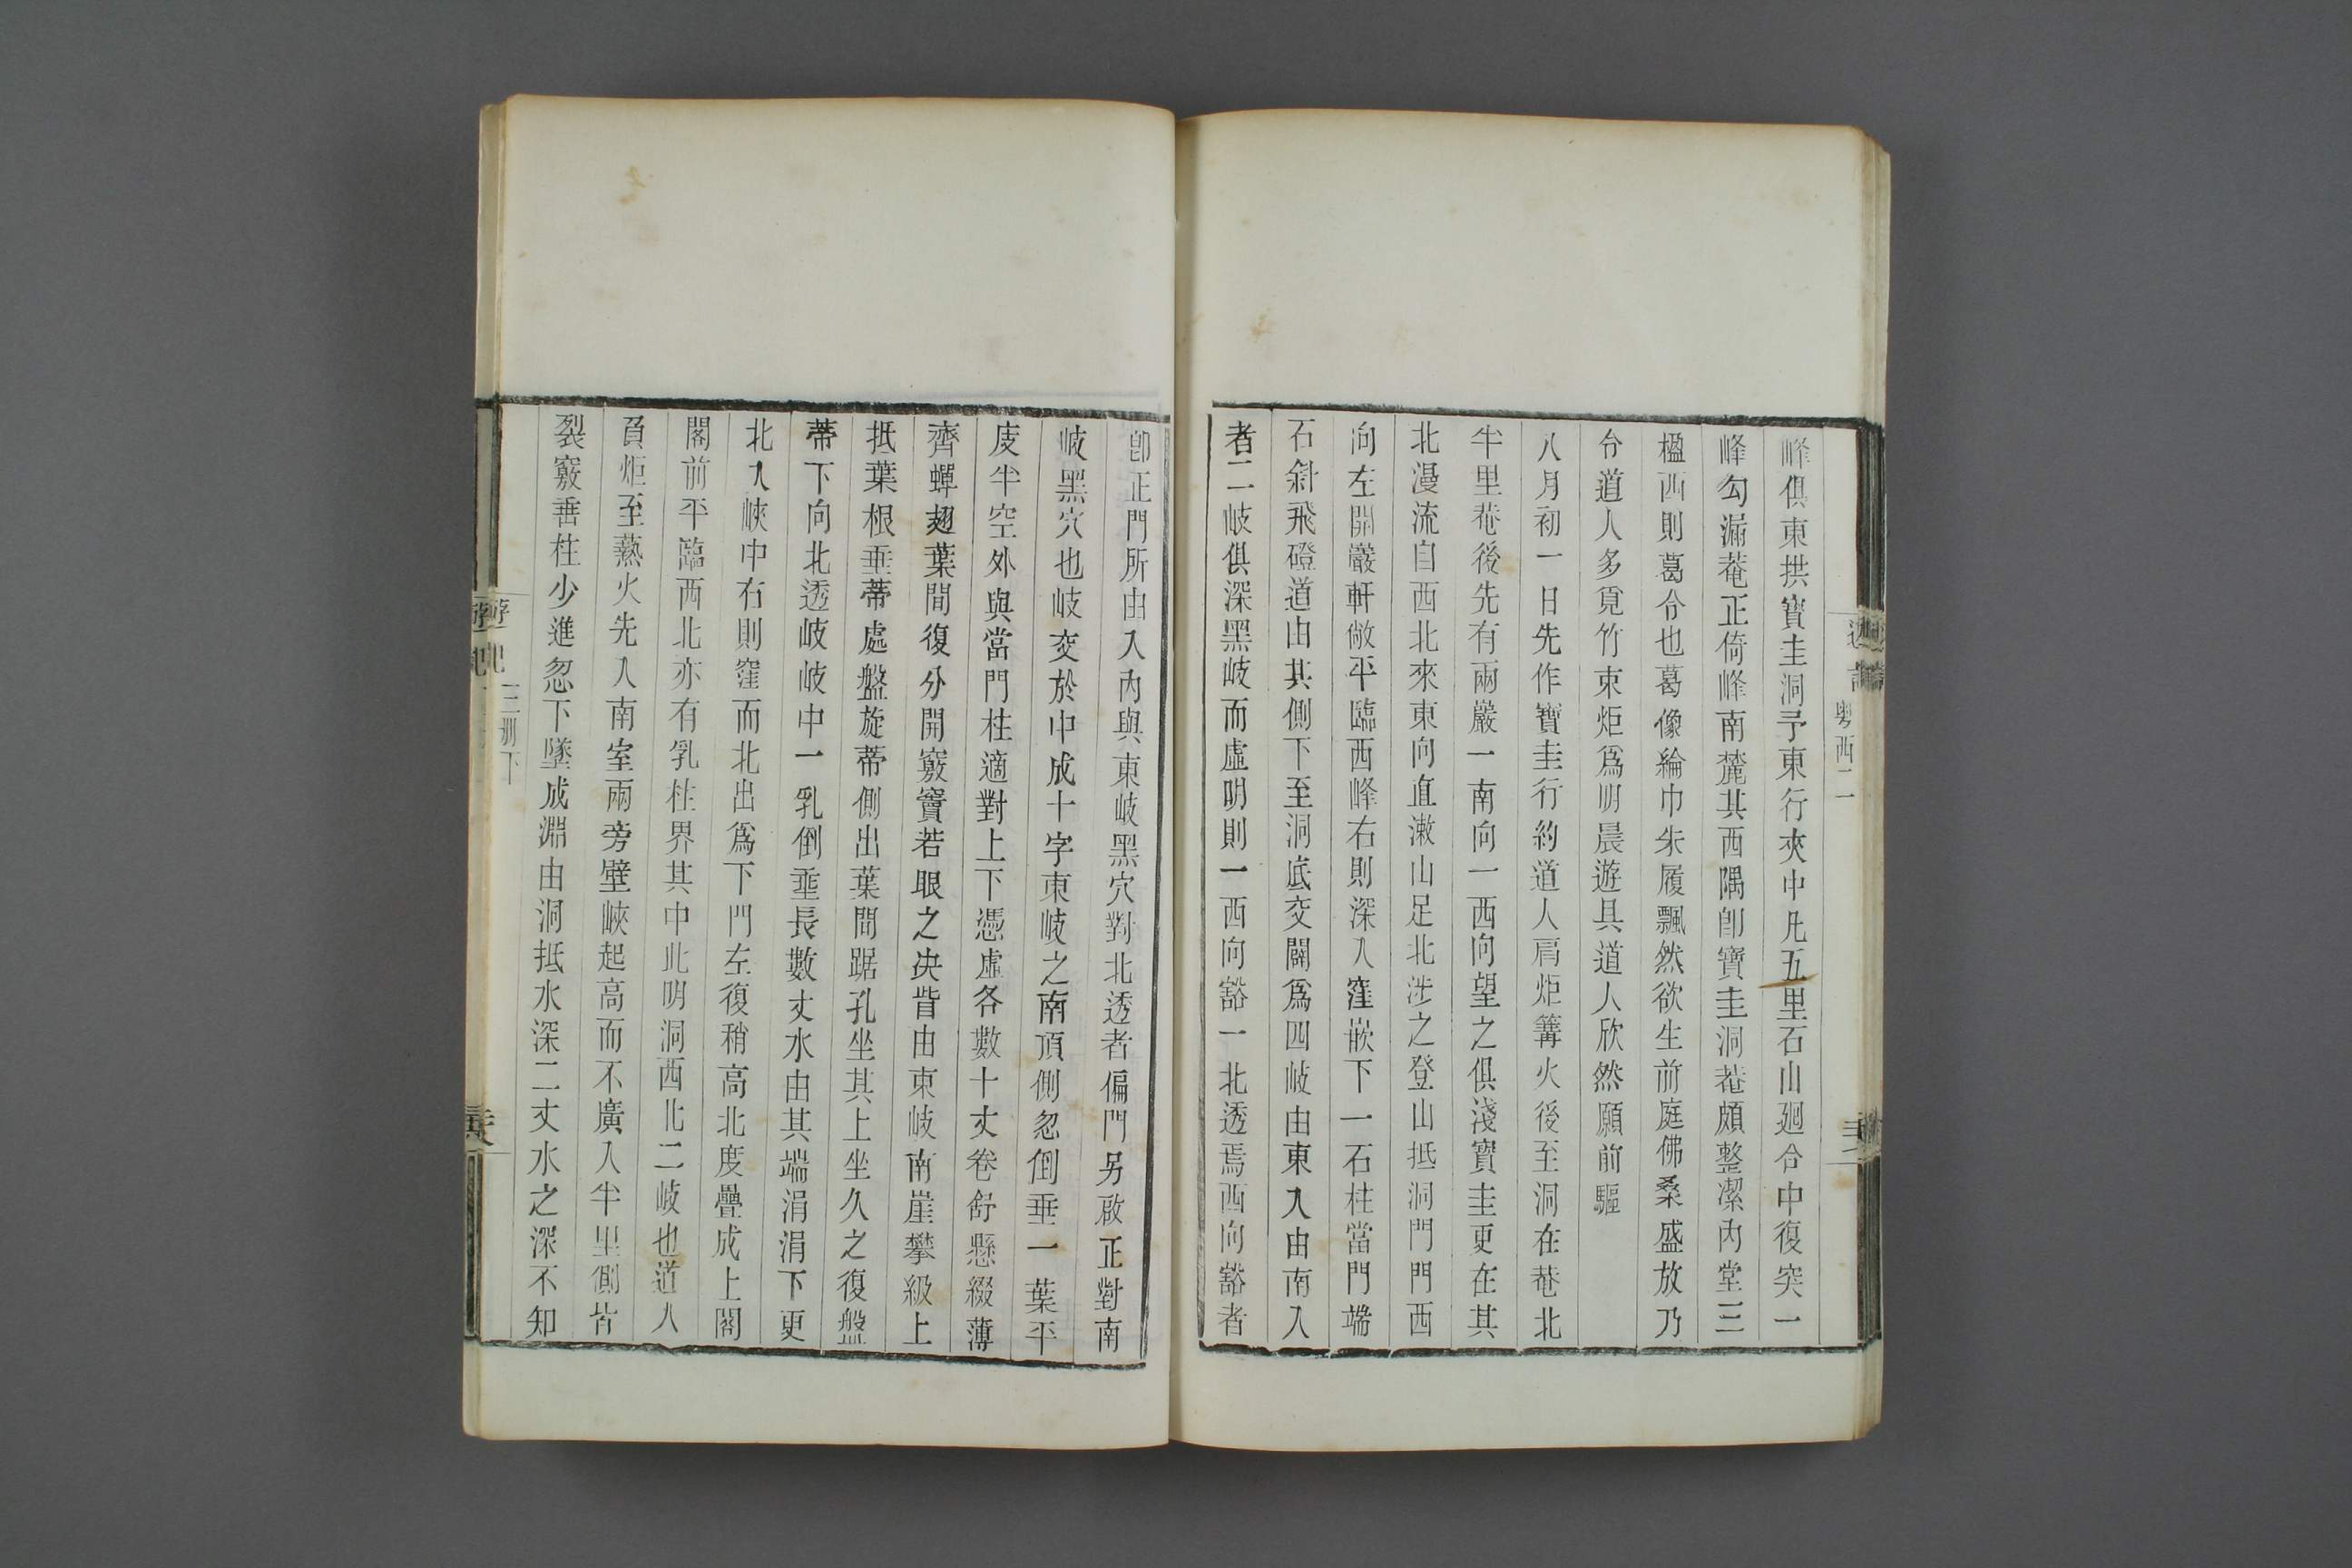 粵西二
峰俱東拱寳圭洞予東行夾中凡五里石山迴合中復突一
峰勾漏菴正倚峰南麓其西隅卽寶圭洞菴頗整潔內堂三
楹西則葛令也葛像綸巾朱履飄然欲生前庭佛桑盛放乃
分道人多覓竹束炬爲明晨遊具道人欣然願前驅
八月初一日先作寶圭行約道人肩炬篝火後至洞在菴北
半里菴後先有兩巖一南向一西向望之俱淺寶圭更在其
北漫流自西北來東向直漱山足北涉之登山抵洞門門西
向左開巖軒敞平臨西峰右則深入窪嵌下一石柱當門端
石斜飛磴道由其側下至洞底交闢爲四岐由東入由南入
者二岐俱深黑岐而虛明則一西向豁一北透焉西向豁者
卽正門所由入內與東岐黑穴對北透者偏門另啟正對南
岐黑穴也岐交於中成十字東岐之南頂側忽倒垂一葉平
庋半空外與當門柱適對上下憑虛各數十丈卷舒懸綴薄
齊蟬翅葉間復分開竅竇若眼之决眥由東岐南崖攀級上
抵葉根垂蒂處盤旋蒂側出葉間踞孔坐其上坐久之復盤
蒂下向北透岐岐中一乳倒垂長數丈水由其端涓涓下更
北入峽中右則窪而北出爲下門左復稍高北度疊成上閣
閣前平臨西北亦有乳柱界其中此明洞西北二岐也道人
負炬至爇火先入南室兩旁壁峽起高而不廣入半里側皆
裂竅垂柱少進忽下墜成淵由洞抵水深二丈水之深不知
遊記 三冊下